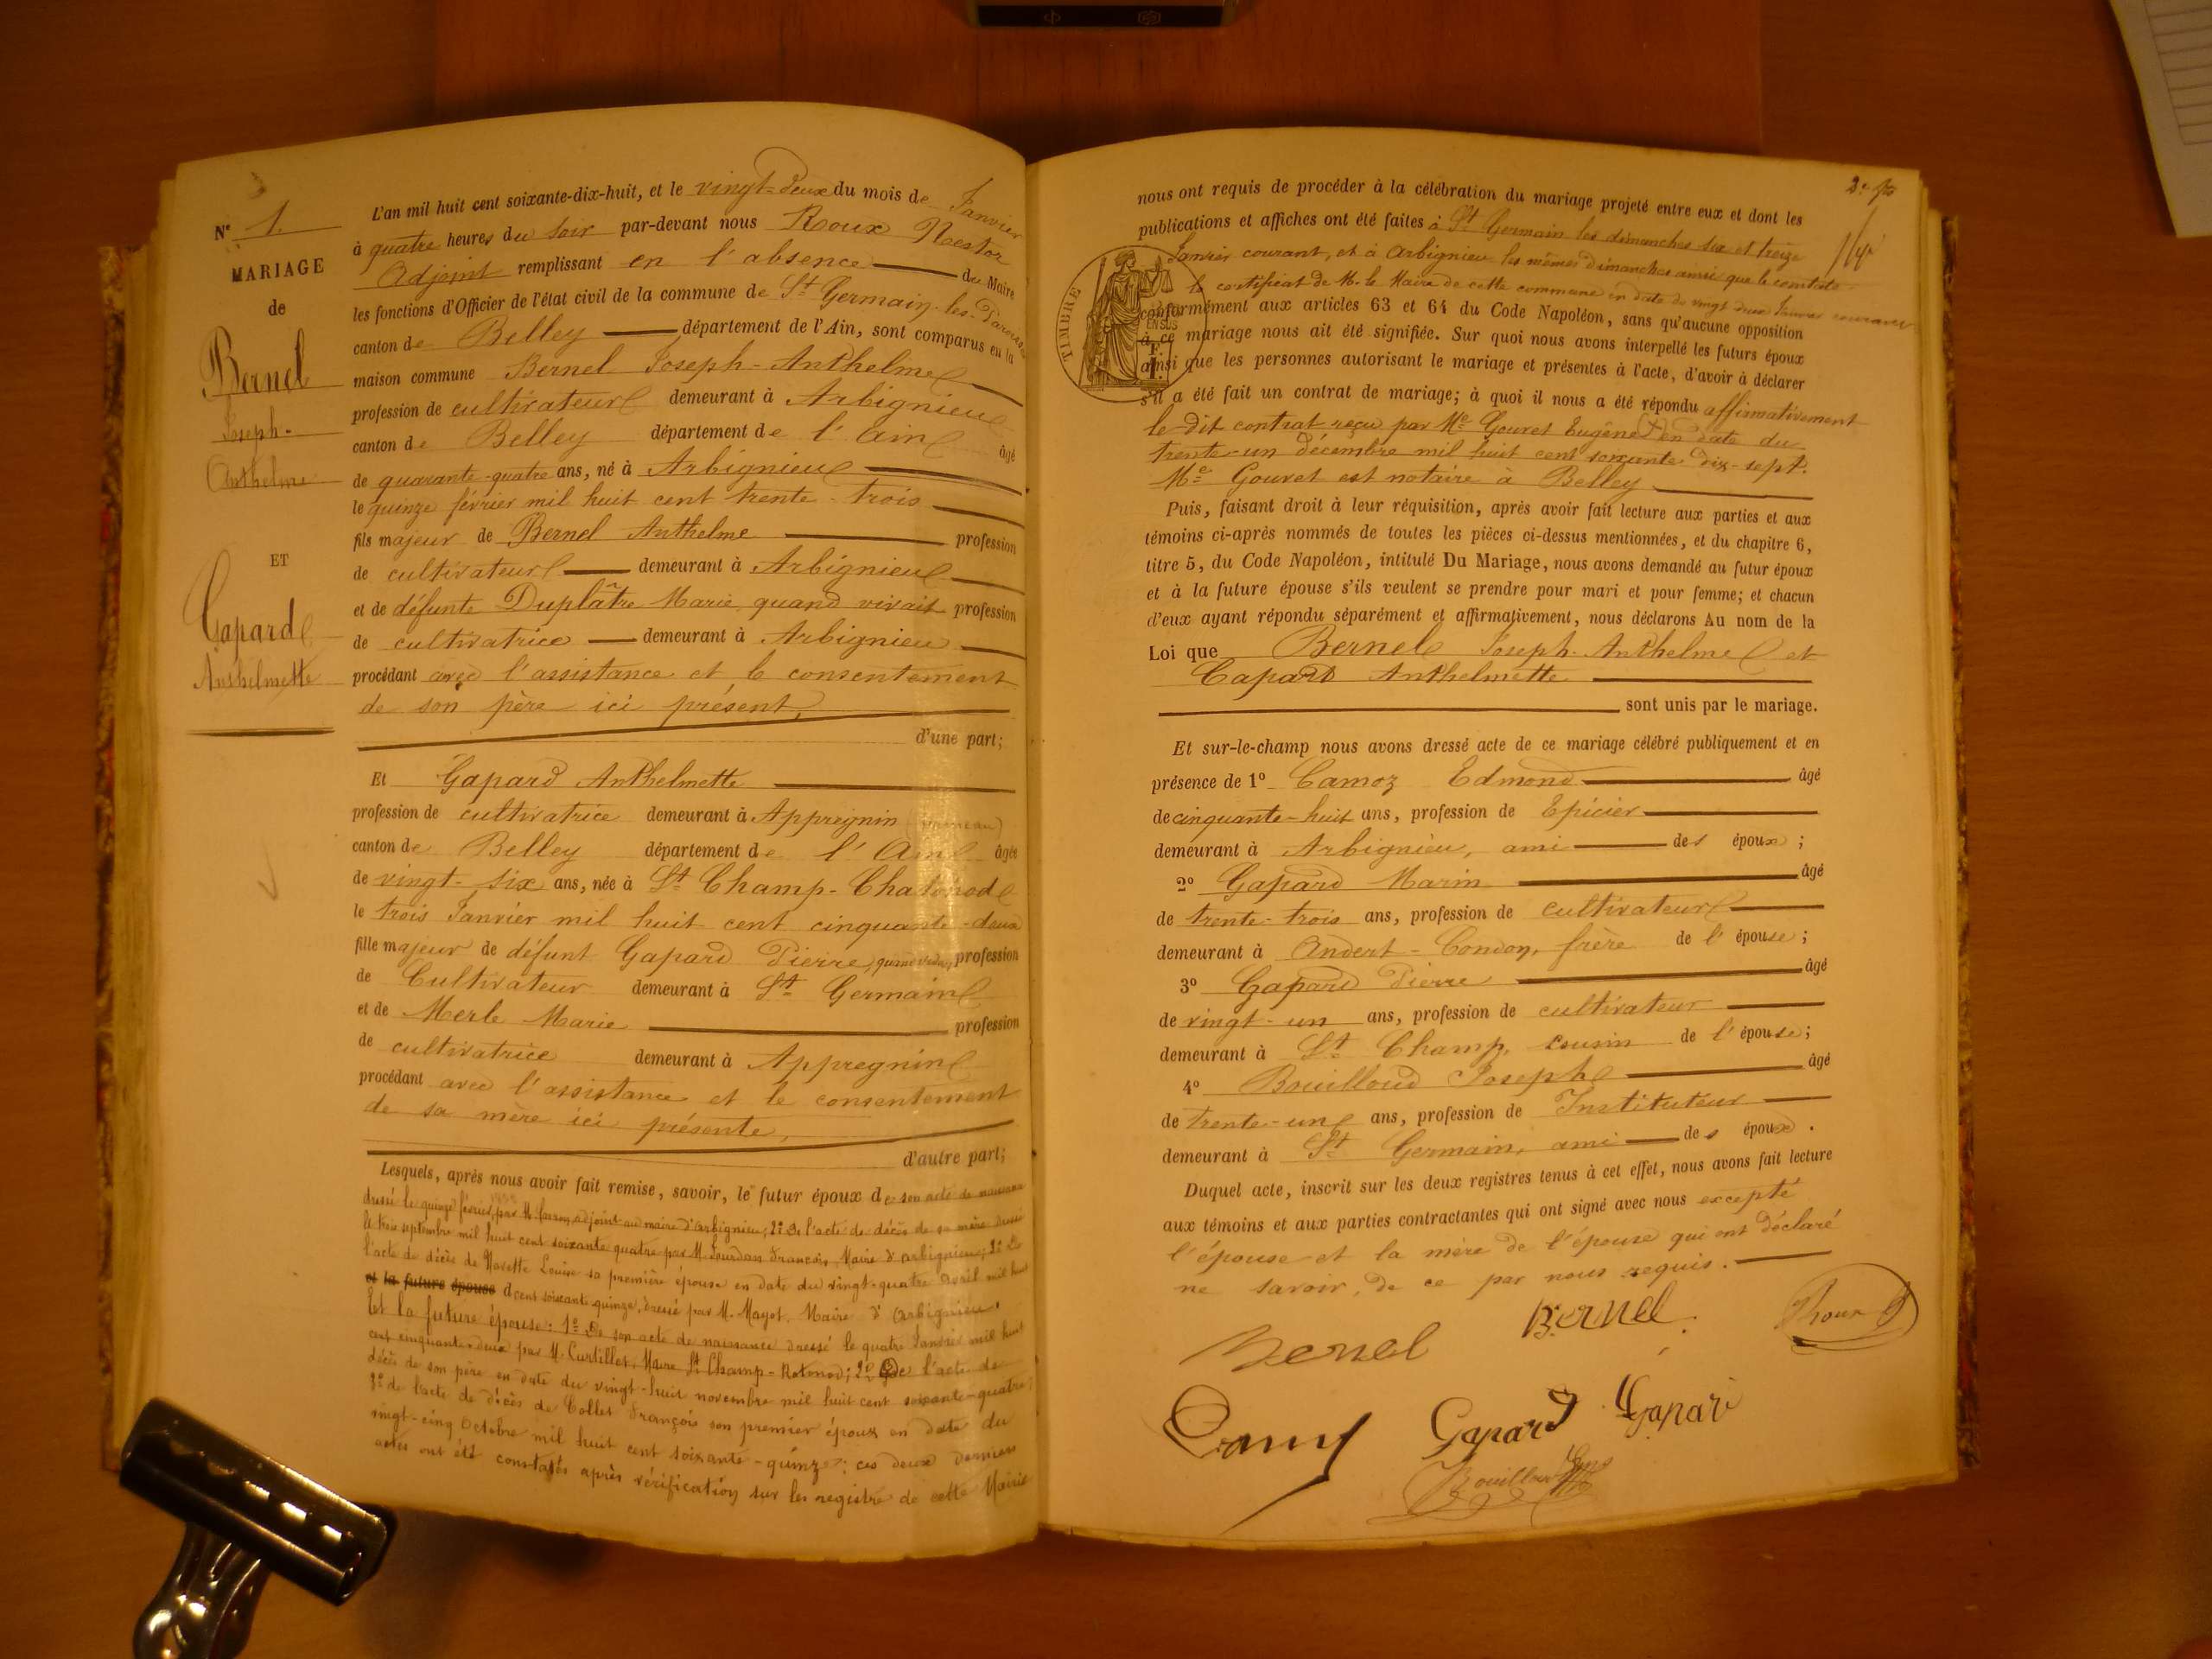 N° 1.
MARIAGE
de
Bernel
Joseph-
Anthelme
ET
Gapard
Anthelmette
L'an mil huit cent soixante-dix-huit, et le vingt-deux du mois de Janvier
à quatre heures du soir par-devant nous Roux Nestor
Adjoint remplissant en l'absence du Maire
les fonctions d'Officier de l'état civil de la commune de St Germain-les-Paroisses
canton de Belley département de l'Ain, sont comparus en la
maison commune Bernel Joseph-Anthelme
profession de cultivateur demeurant à Arbignieu
canton de Belley département de l'Ain âgé
de quarante-quatre ans, né à Arbignieu
le quinze février mil huit cent trente-trois
fils majeur de Bernel Anthelme profession
de cultivateur demeurant à Arbignieu
et de défunte Duplâtre Marie quand vivait profession
de cultivatrice demeurant à Arbignieu
procédant avec l'assistance et le consentement
de son père ici présent,
d'une part;
Et Gapard Anthelmette
profession de cultivatrice demeurant à Appregnin (hameau)
canton de Belley département de l'Ain âgée
de vingt-six ans, née à St Champ-Chatonod
le trois Janvier mil huit cent cinquante-deux
fille majeur de défunt Gapard Pierre, quand vivait, profession
de Cultivateur demeurant à St Germain
et de Merle Marie profession
de cultivatrice demeurant à Appregnin
procédant avec l'assistance et le consentement
de sa mère ici présente,
d'autre part;
Lesquels, après nous avoir fait remise, savoir, le futur époux de son acte de naissance
dressé le quinze février, par M. adjoint au maire d'Arbignieu; 2° de l'acte de décès de sa mère dressé
le trois septembre mil huit cent soixante quatre par M. Jourdan François, Maire d'Arbignieu; 3° De
l'acte de décès de Navette Louise sa première épouse en date du vingt-quatre avril mil huit
et la future épouse d cent soixante-quinze, dressé par M. Mayot, Maire d'Arbignieu.
Et la future épouse: 1° De son acte de naissance dressé le quatre Janvier mil huit
cent cinquante-deux par M. Curtillet, Maire St Champ-Chatonod; 2° de l'acte de
décès de son père en date du vingt-huit novembre mil huit cent soixante-quatre;
3° de l'acte de décès de Collet François son premier époux en date du
vingt-cinq Octobre mil huit cent soixante-quinze; ces deux derniers
actes ont été constatés après vérification sur les registre de cette Mairie
nous ont requis de procéder à la célébration du mariage projeté entre eux et dont les
publications et affiches ont été faites à St Germain les dimanches six et treize
Janvier courant, et à Arbignieu les mêmes dimanches ainsi que le constate
le certificat de M. le Maire de cette commune en date du vingt deux Janvier courant
TIMBRE
EN SUS
conformément aux articles 63 et 64 du Code Napoléon, sans qu'aucune opposition
à ce mariage nous ait été signifiée. Sur quoi nous avons interpellé les futurs époux
ainsi que les personnes autorisant le mariage et présentes à l'acte, d'avoir à déclarer
s'il a été fait un contrat de mariage; à quoi il nous a été répondu affirmativement
le dit contrat reçu par Me Gouret Eugène en date du
trente-un décembre mil huit cent soixante dix-sept.
Me Gouret est notaire à Belley
Puis, faisant droit à leur réquisition, après avoir fait lecture aux parties et aux
témoins ci-après nommés de toutes les pièces ci-dessus mentionnées, et du chapitre 6,
titre 5, du Code Napoléon, intitulé Du Mariage, nous avons demandé au futur époux
et à la future épouse s'ils veulent se prendre pour mari et pour femme; et chacun
d'eux ayant répondu séparément et affirmativement, nous déclarons Au nom de la
Loi que Bernel Joseph-Anthelme et
Gapard Anthelmette
sont unis par le mariage.
Et sur-le-champ nous avons dressé acte de ce mariage célébré publiquement et en
présence de 1° Camoz Edmond âgé
de cinquante-huit ans, profession de Epicier
demeurant à Arbignieu, ami des époux;
2° Gapard Marin âgé
de trente-trois ans, profession de cultivateur
demeurant à Andert-Condon, frère de l'épouse;
3° Gapard Pierre âgé
de vingt-un ans, profession de cultivateur
demeurant à St Champ, cousin de l'épouse;
4° Bouilloud Joseph âgé
de trente-un ans, profession de Instituteur
demeurant à St Germain, ami des époux.
Duquel acte, inscrit sur les deux registres tenus à cet effet, nous avons fait lecture
aux témoins et aux parties contractantes qui ont signé avec nous excepté
l'épouse et la mère de l'épouse qui ont déclaré
ne savoir, de ce par nous requis.
Bernel Bernel Roux
Camoz Gapard Gapard
Bouilloud